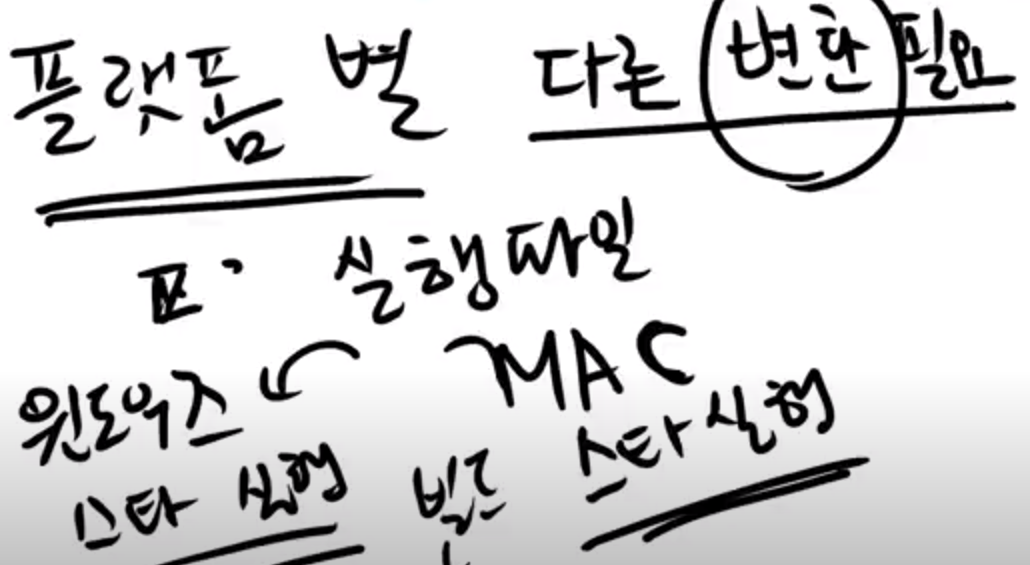 플랫폼 별 다른 변환 필요
실행파일
윈도우즈 MAC
스타 실행 빌드 스타 실행